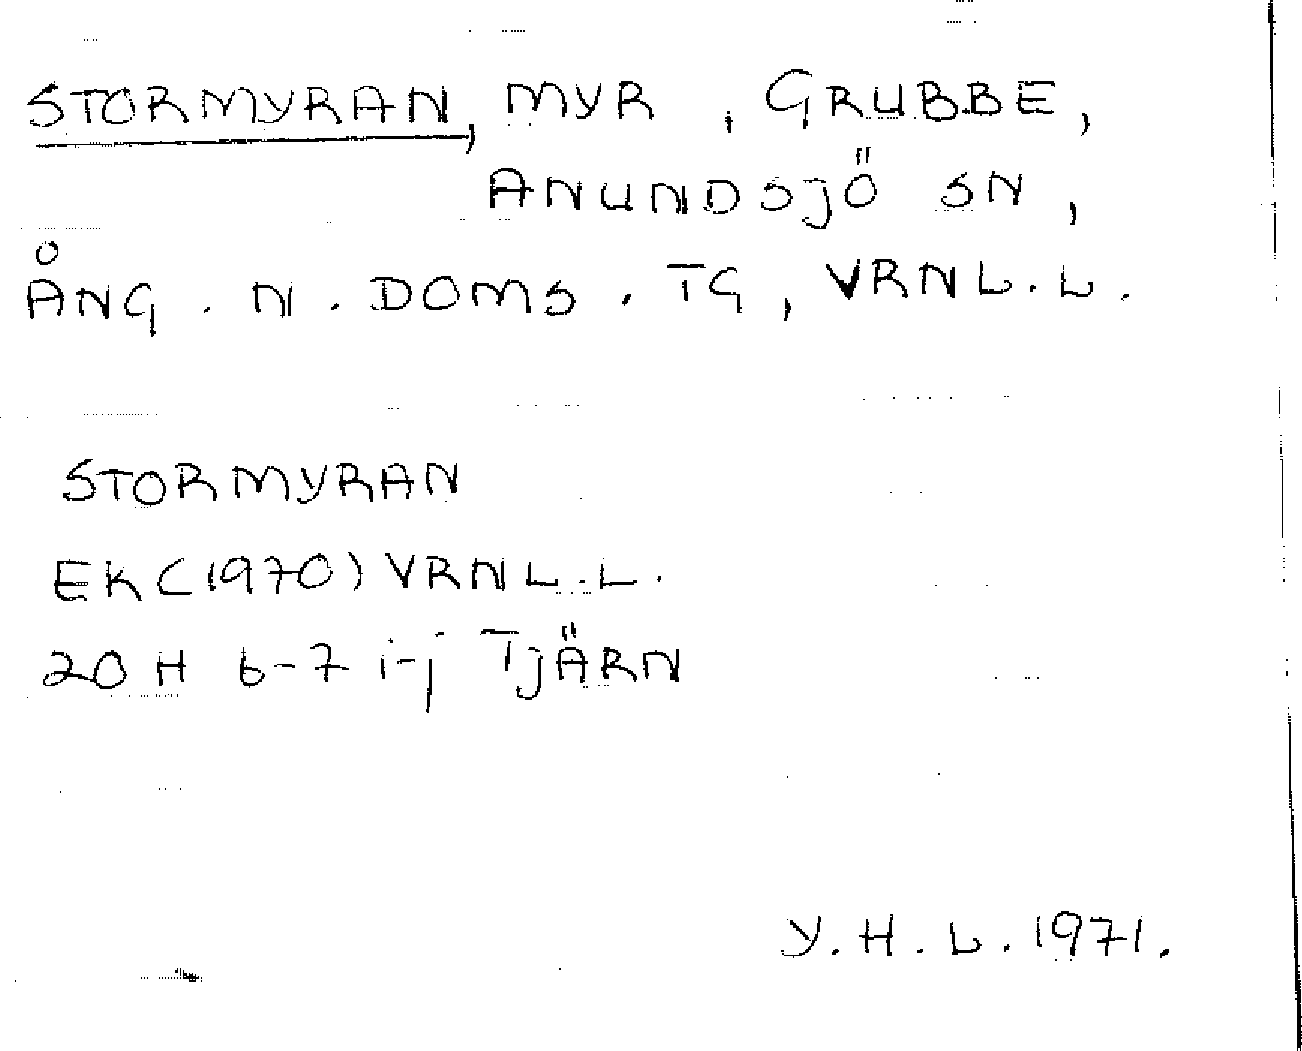 STORMYRAN, MYR, GRUBBE,
ANUNDSJÖ SN,
ÅNG. N. DOMS. TG, VRNL.L.
STORMYRAN
EK(1970) VRNL.L.
20 H 6-7 i-j TJÄRN
Y.H.L. 1971.